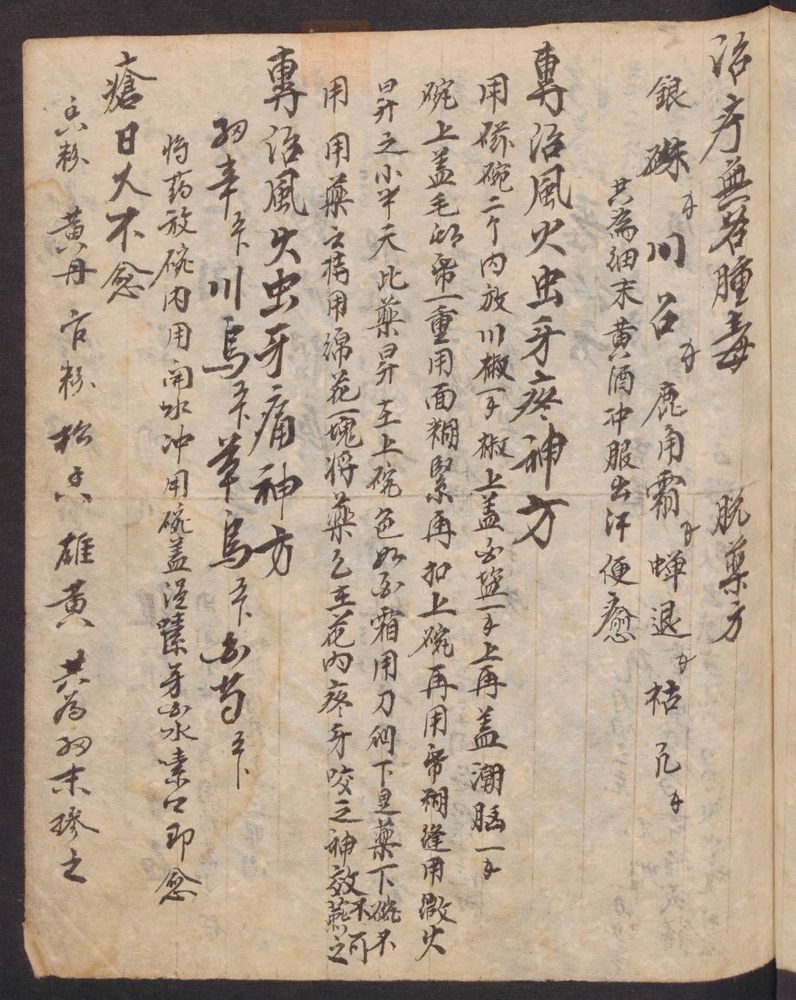 治疔無名腫毒 脫藥方
銀硃 川 鹿角霜 蟬退 枯凡
共為細末黃酒冲服出汗便癒
專治風火虫牙疼神方
用磁碗二个内放川椒一 椒上盖白塩一 上再盖潮腦一
碗上盖毛 帋一重用面糊緊再扣上碗再用帋糊縫用微火
昇之小半天比藥昇至上碗色如白霜用刀 下是藥下碗不
用 用藥之 用綿花一塊将藥 在花内疼牙咬之神效不可 之
專治風火虫牙痛神方
細辛 川烏 草烏 白芷
将药放碗内用開水冲用碗盖 牙 水嗽口即愈
瘡日久不愈
黃丹 官粉 松香 雄黃 共為細末摻之